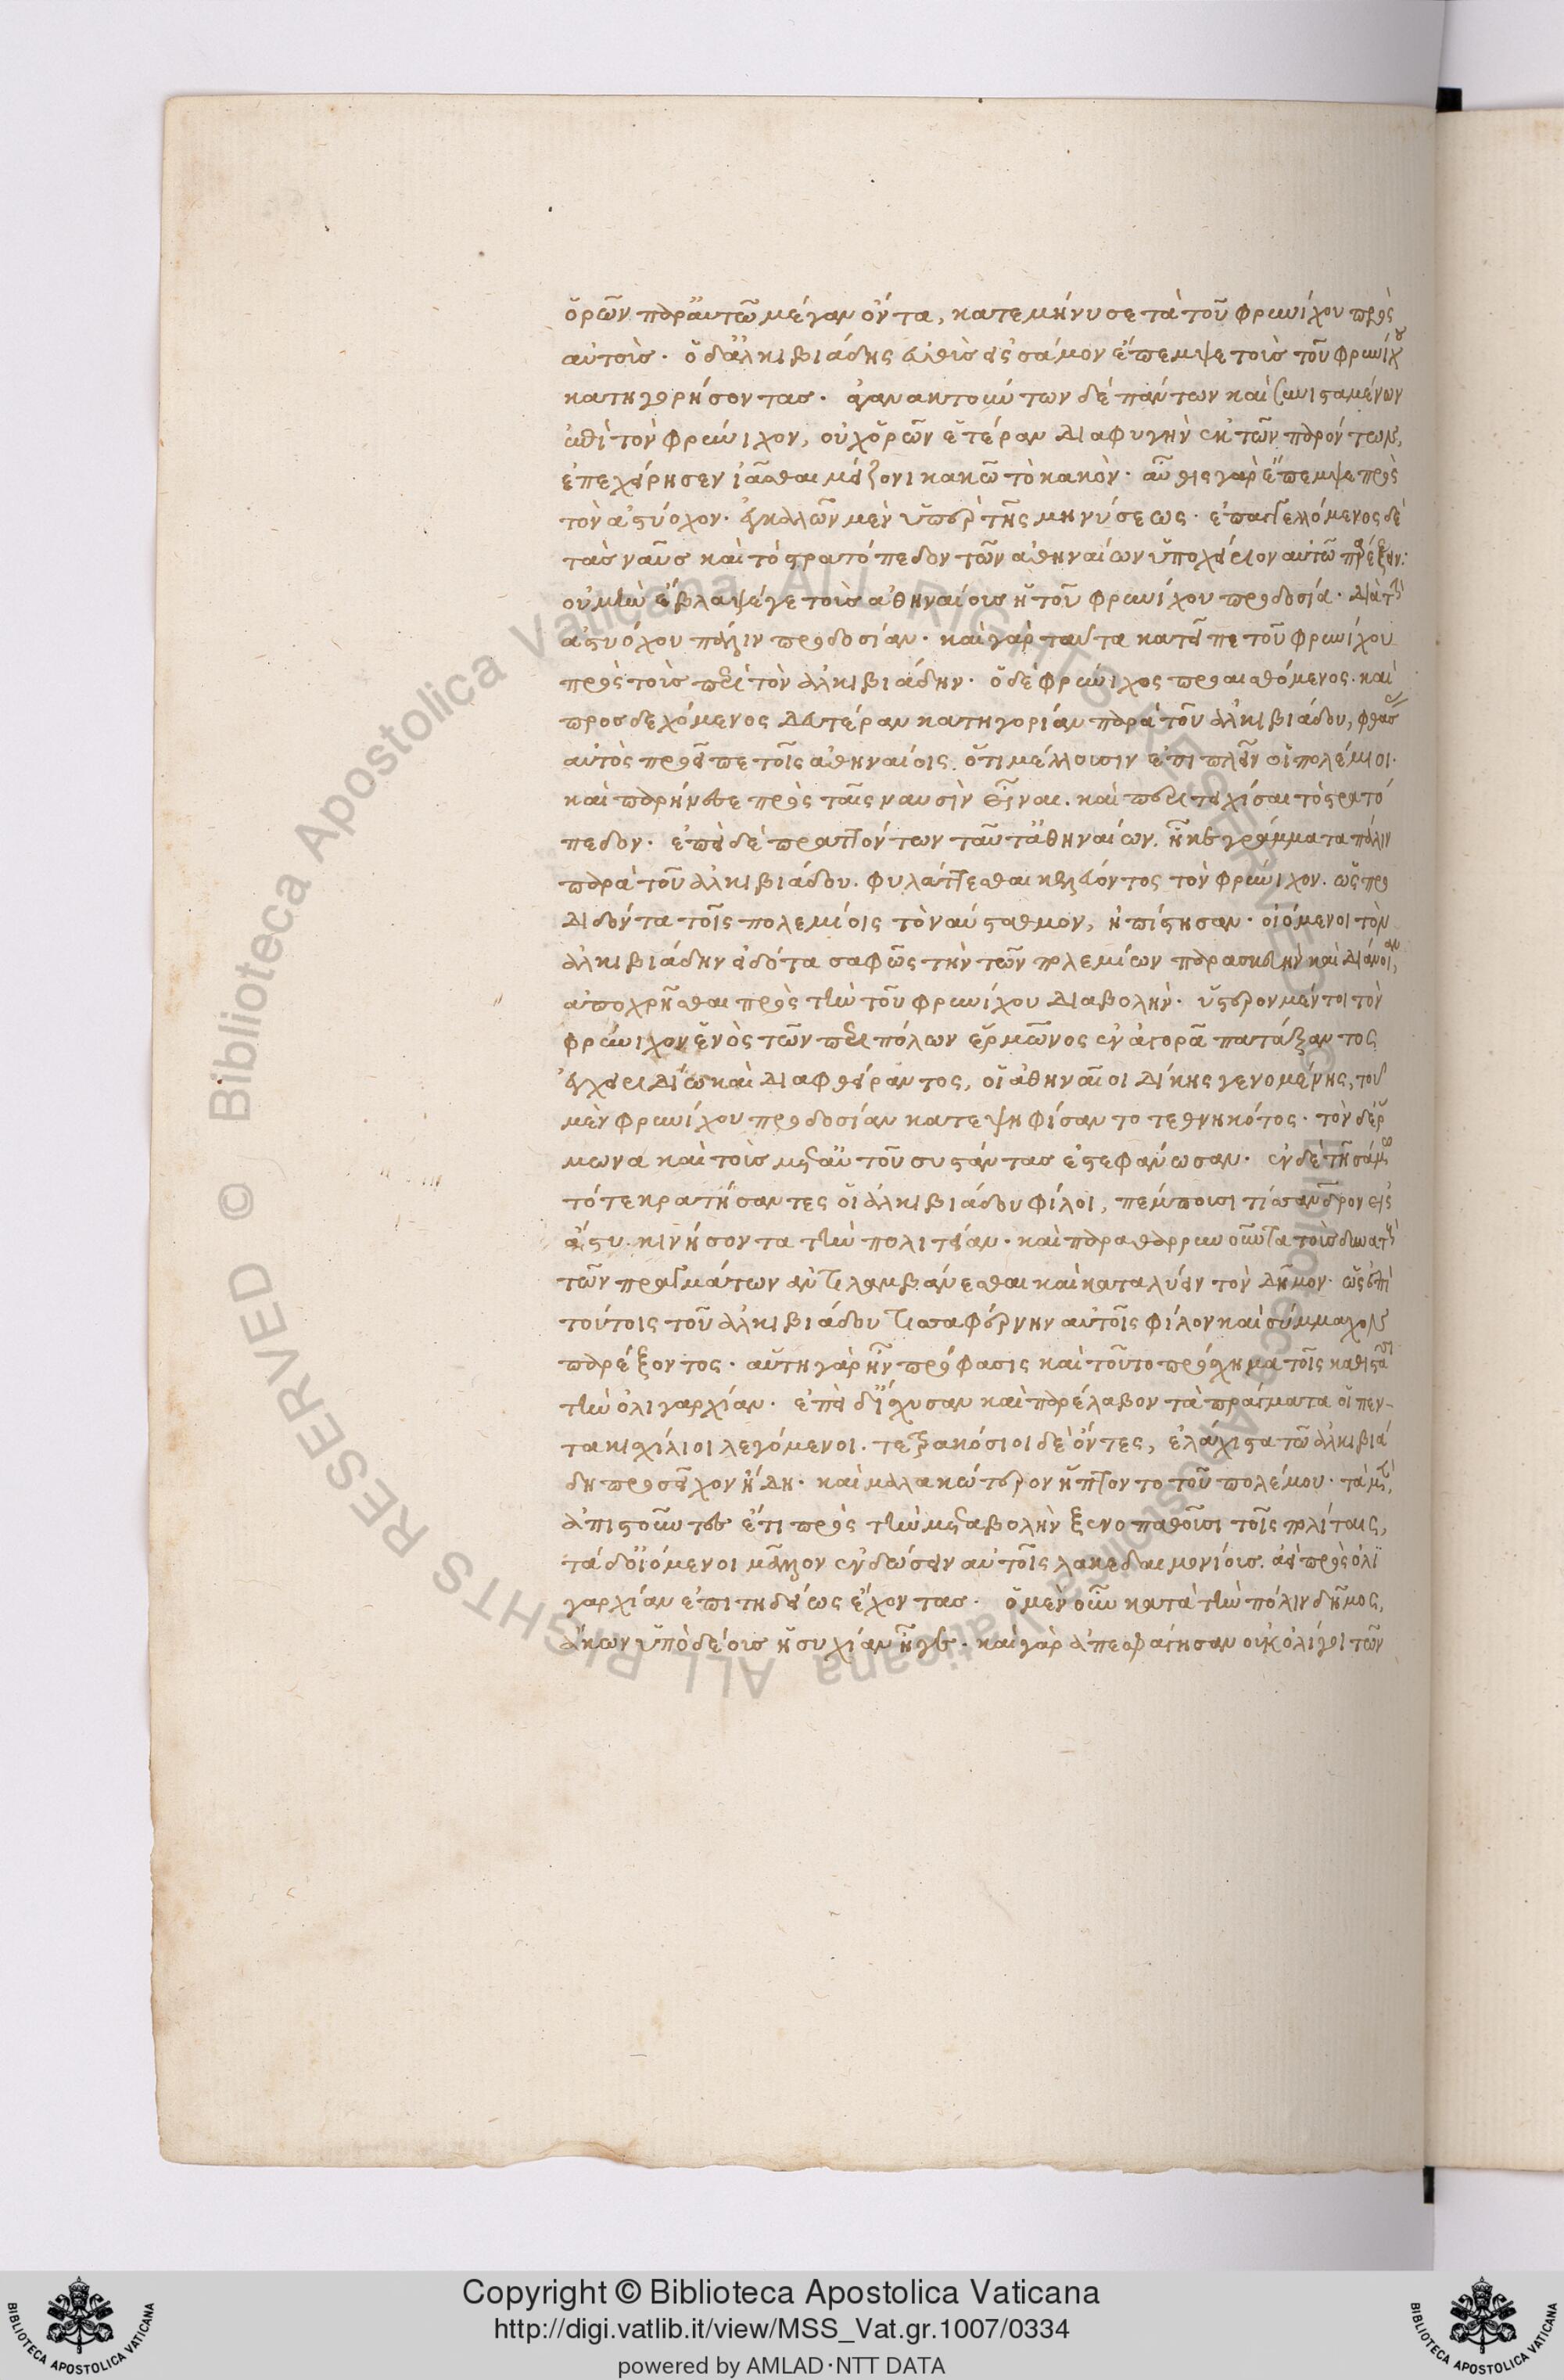 ὁρῶν παρ' αὐτῶ μέγαν ὄντα, κατεμήνυσε τὰ τοῦ φρυνίχου πρὸς
αὐτούς. ὁ δ' ἀλκιβιάδης εὐθὺς εἰς σάμον ἔπεμψε τοὺς τοῦ φρυνίχου
κατηγορήσοντας. ἀγανακτούντων δὲ πάντων καὶ συνισταμένων
ἐπὶ τὸν φρύνιχον, οὐχ ὁρῶν ἑτέραν διαφυγὴν ἐκ τῶν παρόντων,
ἐπεχείρησεν ἰᾶσθαι μείζονι κακῶ τὸ κακόν. αὖθις γὰρ ἔπεμψε πρὸς
τὸν ἀστύοχον. ἐγκαλῶν μὲν ὑπὲρ τῆς μηνύσεως. ἐπαγγελλόμενος δὲ
τὰς ναῦς καὶ τὸ στρατόπεδον τῶν ἀθηναίων ὑποχείριον αὐτῶ παρέξειν.
οὐ μὴν ἔβλαψέ γε τοὺς ἀθηναίους ἡ τοῦ φρυνίχου προδοσία. διὰ τὴν
ἀστυόχου πάλιν προδοσίαν. καὶ γὰρ ταῦτα κατεῖπε τοῦ φρυνίχου
πρὸς τοὺς περὶ τὸν ἀλκιβιάδην. ὁ δὲ φρύνιχος προαισθόμενος. καὶ
προσδεχόμενος δευτέραν κατηγορίαν παρὰ τοῦ ἀλκιβιάδου, φθάσας
αὐτὸς προεῖπε τοῖς ἀθηναίοις. ὅτι μέλλουσιν ἐπιπλεῖν οἱ πολέμιοι.
καὶ παρήνεσε πρὸς ταῖς ναυσὶν εἶναι. καὶ περιτειχίσαι τὸ στρατό
πεδον. ἐπεὶ δὲ πραττόντων ταῦτα ἀθηναίων. ἧκε γράμματα πάλιν
παρὰ τοῦ ἀλκιβιάδου. φυλάττεσθαι κελεύοντος τὸν φρύνιχον. ὡς προ
διδόντα τοῖς πολεμίοις τὸν αύσταθμον, ἠπίστησαν. οἰόμενοι τὸν
ἀλκιβιάδην εἰδότα σαφῶς τὴν τῶν πολεμίων παρασκευὴν καὶ διάνοιαν,
ἀποχρῆσθαι πρὸς τὴν τοῦ φρυνίχου διαβολήν. ὕστερον μέντοι τὸν
φρύνιχον ἑνὸς τῶν περιπόλων ἕρμωνος ἐν ἀγορᾶ πατάξαντος
ἐγχειριδίω καὶ διαφθείραντος, οἱ ἀθηναῖοι δίκης γενομένης, τοῦ
μὲν φρυνίχου προδοσίαν κατεψηφίσαντο τεθνηκότος. τὸν δ' ἕρ
μωνα καὶ τοὺς μετ' αὐτοῦ συστάντας ἐστεφάνωσαν. ἐν δὲ τῆ σάμω
τότε κρατήσαντες οἱ ἀλκιβιάδου φίλοι, πέμπουσι πείσανδρον εἰς
ἄστυ. κινήσοντα τὴν πολιτείαν. καὶ παραθαρρυνοῦντα τοὺς δυνατοὺς
τῶν πραγμάτων ἀντιλαμβάνεσθαι καὶ καταλύειν τὸν δῆμον. ὡς ἐπὶ
τούτοις τοῦ ἀλκιβιάδου τισαφέρνην αὐτοῖς φίλον καὶ σύμμαχον
παρέξοντος. αὕτη γὰρ ἦν πρόφασις καὶ τοῦτο πρόσχημα τοῖς καθιστᾶσι
τὴν ὀλιγαρχίαν. ἐπεὶ δ' ἴσχυσαν καὶ παρέλαβον τὰ πράγματα οἱ πεν-
τακισχίλιοι λεγόμενοι. τετρακόσιοι δὲ ὄντες, ἐλάχιστα τῶ ἀλκιβιά
δη προσεῖχον ἤδη. καὶ μαλακώτερον ἥπτοντο τοῦ πολέμου. τὰ μὲν,
ἀπιστοῦντες ἔτι πρὸς τὴν μεταβολὴν ξενοπαθοῦσι τοῖς πολίταις,
τὰ δ' οἰόμενοι μᾶλλον ἐνδώσειν αὐτοῖς λακεδαιμονίους. ἀεὶ πρὸς ὀλι
γαρχίαν ἐπιτηδείως ἔχοντας. ὁ μὲν οὖν κατὰ τὴν πόλιν δῆμος,
ἄκων ὑπὸ δέους ἡσυχίαν ἦγε. καὶ γὰρ ἀπεσφάγησαν οὐκ ὀλίγοι τῶν
Copyright © Biblioteca Apostolica Vaticana
http://digi.vatlib.it/view/MSS_Vat.gr.1007/0334
powered by AMLAD·NTT DATA
© Biblioteca Apostolica Vaticana ALL RIGHTS RESERVED
© Biblioteca Apostolica Vaticana ALL RIGHTS RESERVED
BIBLIOTECA APOSTOLICA VATICANA
BIBLIOTECA APOSTOLICA VATICANA